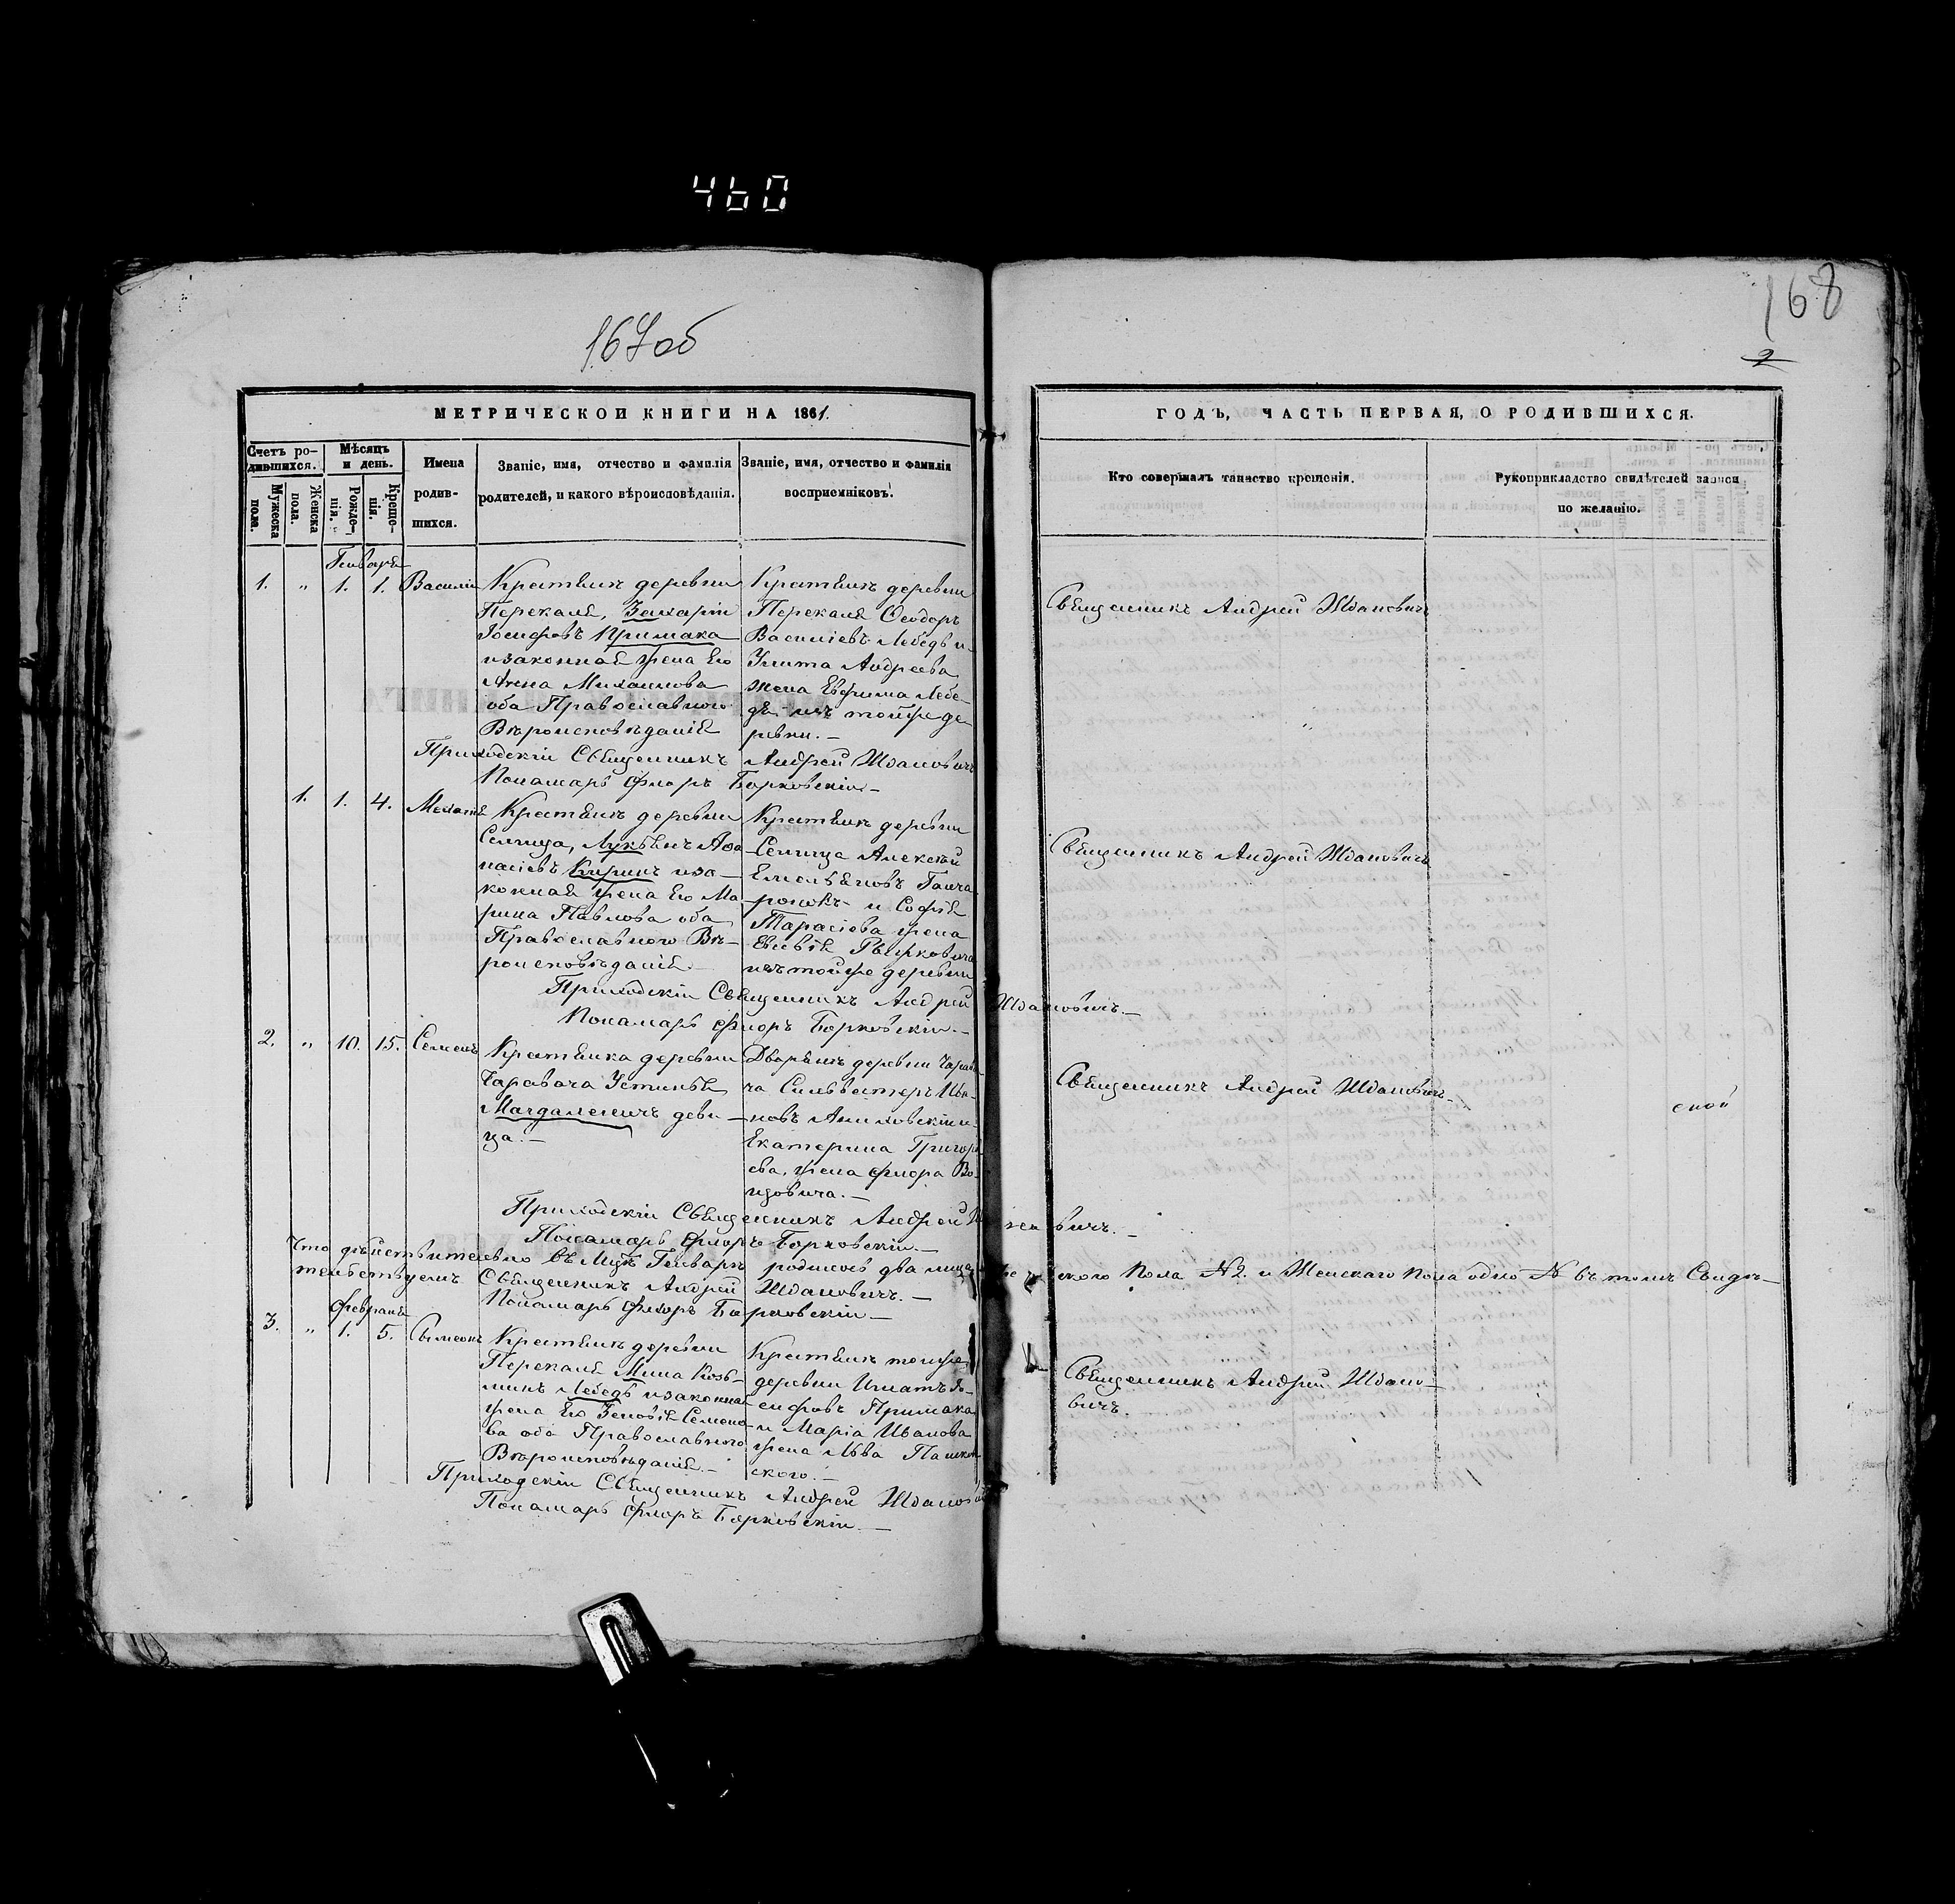 460
167об
168
2
МЕТРИЧЕСКОЙ КНИГИ НА 1861.
ГОДЪ, ЧАСТЬ ПЕРВАЯ, О РОДИВШИХСЯ.
Счетъ ро-
дившихся.
Мужеска
пола.
Женска
пола.
Мѣсяцъ
и день.
Рожде-
нія.
Креще-
нія.
Имена
родив-
шихся.
Званіе, имя, отчество и фамилія
родителей, и какого вѣроисповѣданія.
Званіе, имя, отчество и фамилія
воспріемниковъ.
Кто совершалъ таинство крещенія.
Рукоприкладство свидѣтелей записи
по желанію.
Генваря
1. „ 1. 1. Василій
Крестьянъ деревни
Перекаля, Захарія
Іосифовъ Примака
и законная жена Его
Анна Михайлова
оба Православного
Вѣроисповѣданія
Крестьянъ деревни
Перекаля Ѳеодоръ
Василіевъ Лебедь и
Улита Андреева
жена Евфима Лебе-
дя изъ тойже де
ревни. —
Священникъ Андрей Ждановичъ
Приходскій Священникъ Андрей Ждановичъ
Понамарь Флоръ Борковскій —
1. 1. 4.
Крестьянъ деревни
Селища, Лукьянъ Афа
насіевъ и за-
конная жена Его Ма
рина Павлова оба
Православного Вѣ-
роисповѣданія. —
Крестьянъ деревни
Селища Алексѣй
Емельяновъ Ганча
рокъ и Софія
Тарасіова жена
изъ тойже деревни
Священникъ Андрей Ждановичъ
Приходскій Священникъ Андрей Ждановичъ. —
Понамарь Флоръ Борковскій. —
2. „ 10. 15. Семенъ
Крестьянка деревни
Устинья
Магдаленичъ деви-
ца. —
Дворянъ деревни
ча Сильвестеръ Ива-
новъ и
Екатерина Григорі
ева, жена Флора Во
изовича. —
Священникъ Андрей Ждановичъ. —
ской
Приходскій Священникъ Андрей Ждановичъ. —
Понамарь Флоръ Борковскій. —
Что дѣйствительно въ Мцѣ Генварѣ родилось два лица ского пола № 2. и Женскаго пола одно № въ томъ Свидѣ-
тельствуемъ Священникъ Андрей Ждановичъ. —
Понамарь Флоръ Борковскій —
Февраля
3. „ 1. 5. Симеонъ
Крестьянъ деревни
Перекаля Мина Козь-
минъ Лебедь и законная
жена Его Зеновія Семено
ва оба Православного
Вѣроисповѣданія. —
Крестьянъ тойже
деревни Игнатъ Іо-
сифовъ Примака
и Марія Иванова
жена Льва Пашков
ского. —
Священникъ Андрей Ждано-
вичъ.
Приходскій Священникъ Андрей Ждановичъ
Понамарь Флоръ Борковскій. —